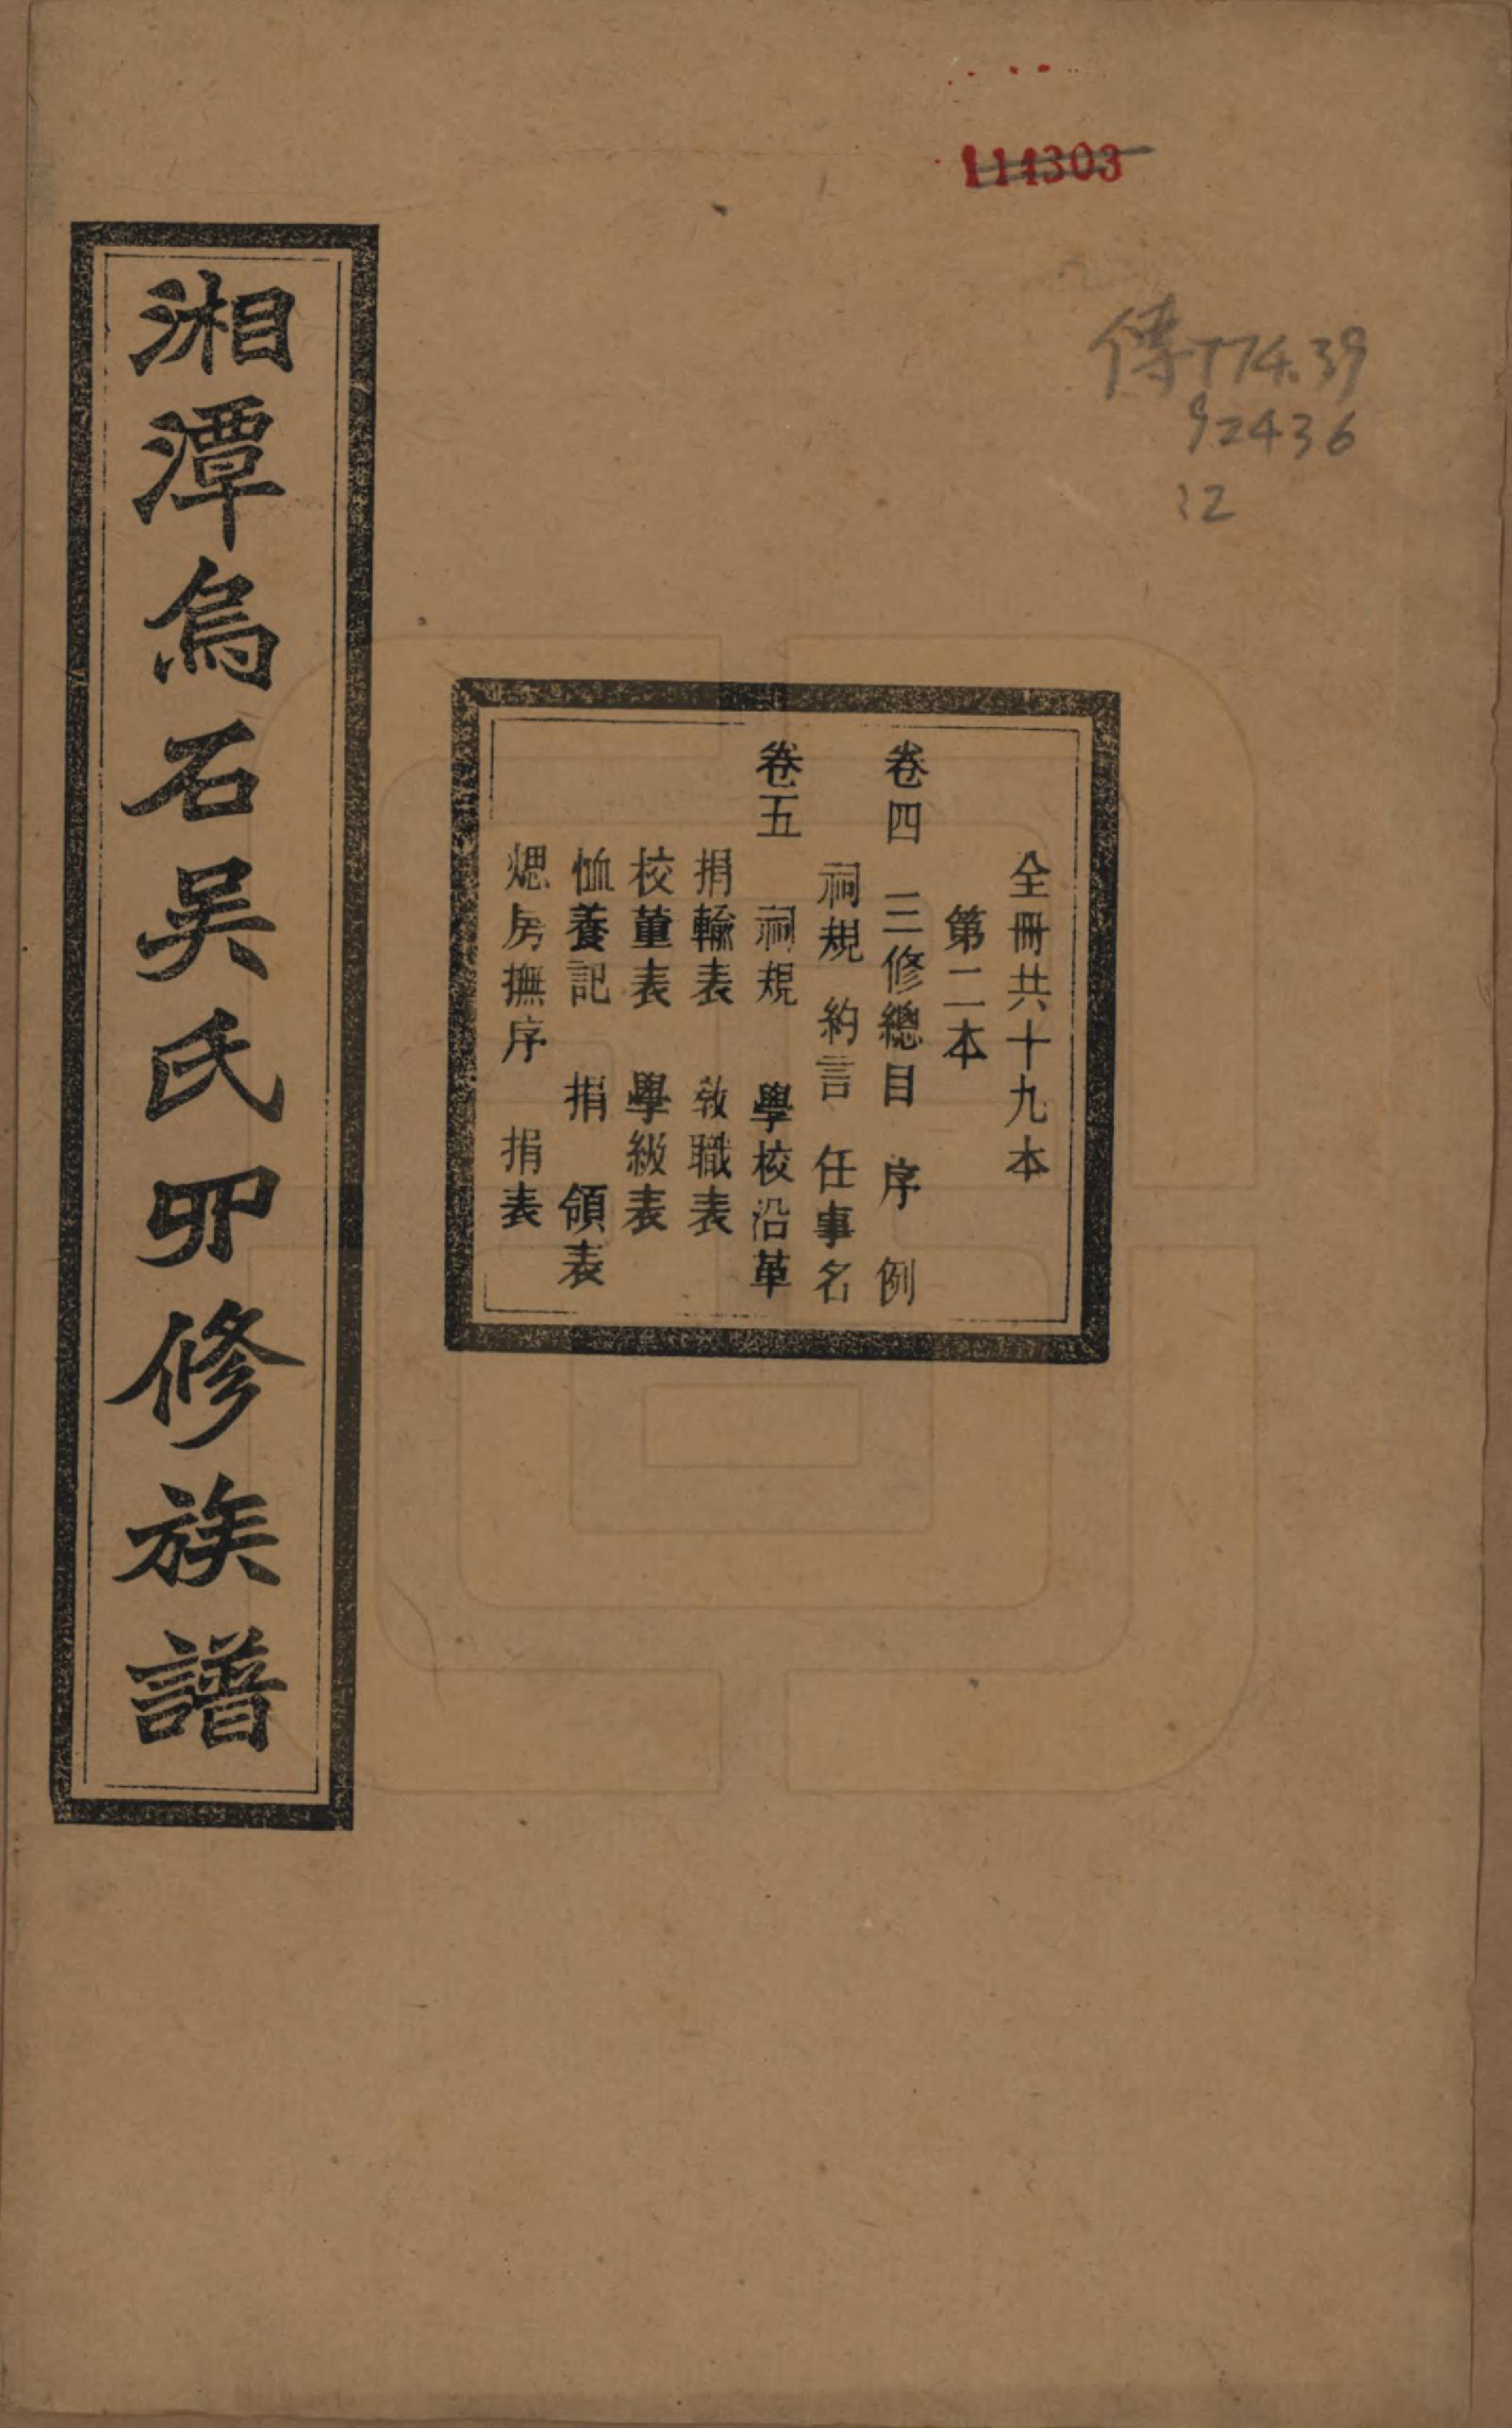 114303
傳774.39
92436
12
全冊共十九本
第二本
卷四 三修總目 序 例
祠規 約言 任事名
卷五 祠規 學校沿革
捐輸表 教職表
校董表 學級表
恤養記 捐 領表
煾房撫序 捐表
湘潭烏石吳氏四修族譜